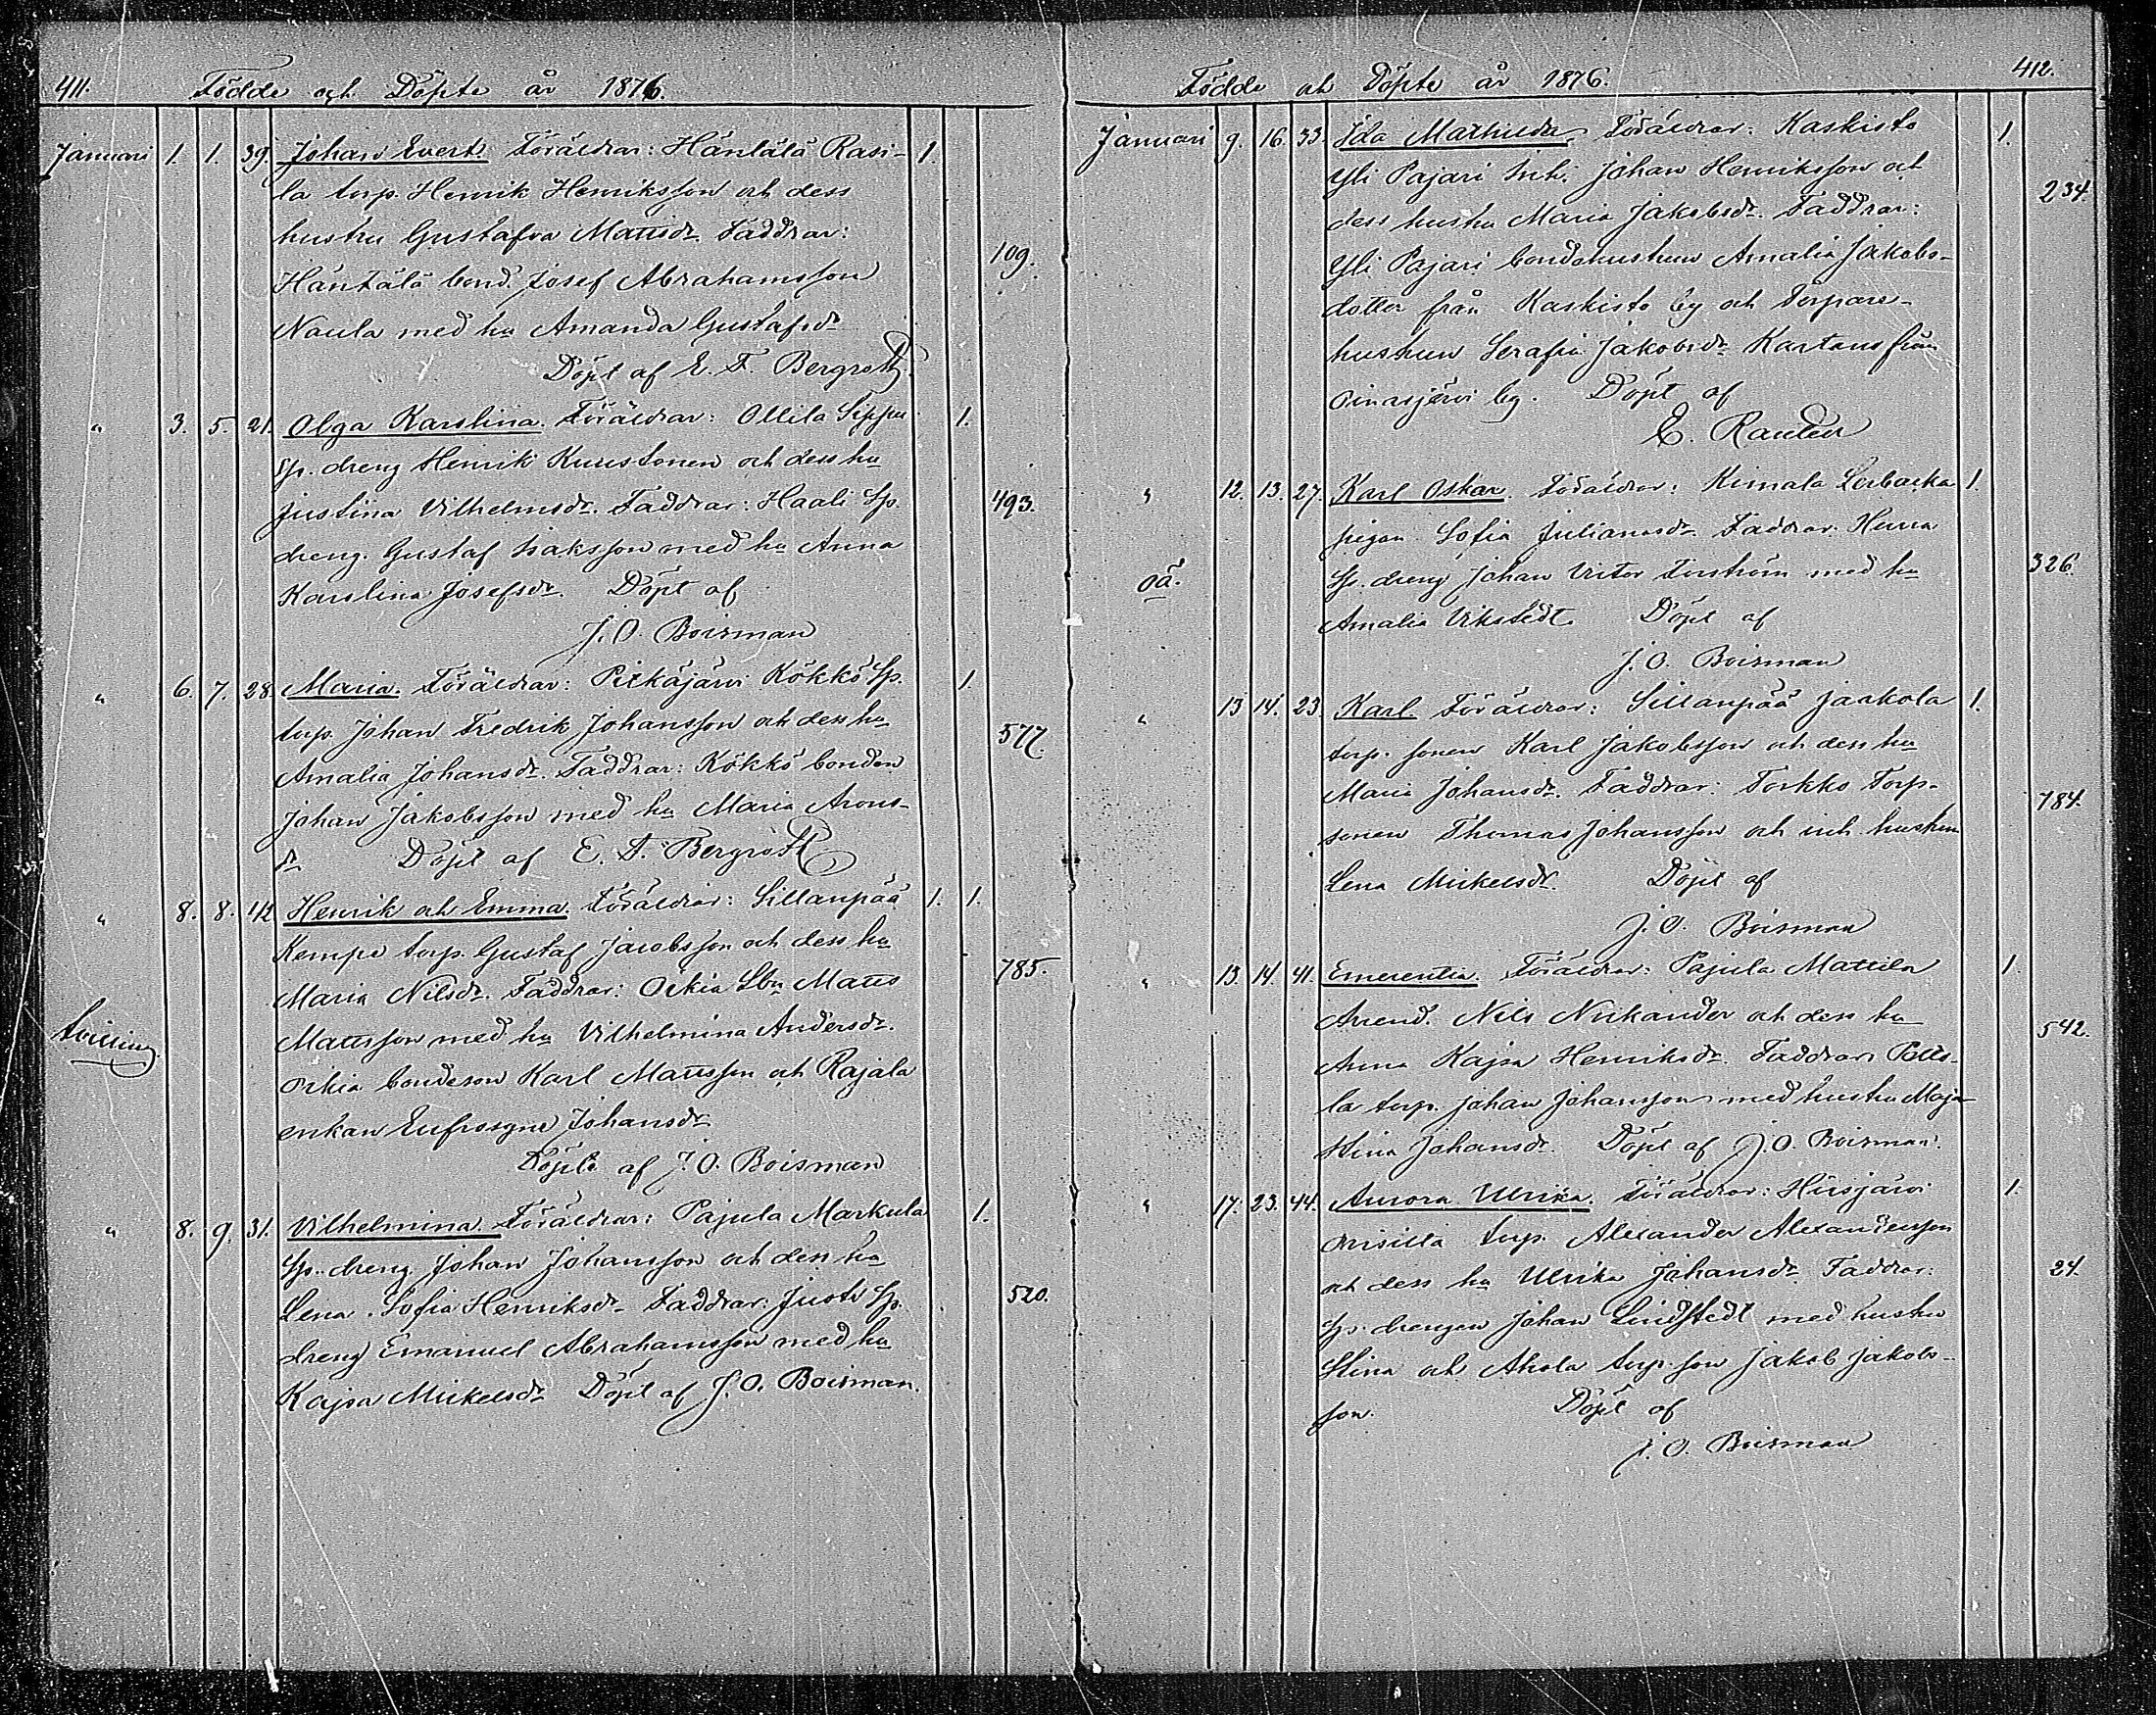 411. Födde och Döpte år 1876.
Januari 1. 1. 39. Johan Evert. Föräldrar: Häntälä Rasi- 1.
la torp. Henrik Henriksson och dess
hustru Gustafva Mattsdr. Faddrar:
109.
Häntälä bond. Josef Abrahamsson
Naula med hu Amanda Gustafsdr
Döpt af E. F. Bergroth.
" 3. 5. 21. Olga Karolina. Föräldrar: Ollila Sippu 1.
Sp. dreng Henrik Kuustonen och dess hu
Justina Vilhelmsdr. Faddrar: Haali Sp. 493.
dreng. Gustaf Isaksson med hu Anna
Karolina Josefsdr. Döpt af
J. O. Boisman
" 6. 7. 28. Maria. Föräldrar: Pitkäjärvi Kökkö Sp. 1.
torp. Johan Fredrik Johansson och dess hu 577.
Amalia Johansdr. Faddrar: Kökkö bonden
Johan Jakobsson med hu Maria Arons-
dr Döpt af E. F. Bergroth
" 8. 8. 42 Henrik och Emma. Föräldrar: Sillanpää 1. 1.
Kempe torp. Gustaf Jacobsson och dess hu
Maria Nilsdr. Faddrar: Oikia Sbn Matts 785.
tvilling. Mattsson med hu Vilhelmina Andersdr.
Oikia bondeson Karl Mattsson och Rajala
enkan Eufrosyne Johansdr
Döpte af J. O. Boisman
" 8. 9. 31. Vilhelmina. Föräldrar: Pajula Markula 1.
Sp. dreng Johan Johansson och dess hu
Lena Sofia Henriksdr Faddrar: Justi Sp. 520.
dreng Emanuel Abrahamsson med hu
Kajsa Mickelsdr Döpt af J. O. Boisman.
Födde och Döpte år 1876. 412.
Januari 9. 16. 33. Ida Mathilda. Föräldrar: Kaskisto 1.
Yli Pajari Inh. Johan Henriksson och 234.
dess hustru Maria Jakobsdr. Faddrar:
Yli Pajari bondehustrun Amalia Jakobs-
dotter från Kaskisto by och Torpare-
hustrun Serafia Jakobsdr Kartano från
Oinasjärvi by. Döpt af
E. Rautell
" 12. 13. 27. Karl Oskar. Föräldrar: Kimala Lerbacka 1.
pigan Sofia Julianasdr Faddrar:
oä. Sp. dreng Johan Victor Forström med hu 326.
Amalia Vikstedt. Döpt af
J. O. Boisman
" 13 14. 23. Karl. Föräldrar: Sillanpää Jaakola 1.
torp. sonen Karl Jakobsson och dess hu
Maria Johansdr. Faddrar: Torkko Torp- 784.
sonen Thomas Johansson och inh. hustrun
Lena Mickelsdr. Döpt af
J. O. Boisman
" 13. 14. 41. Emerentia. Föräldrar: Pajula Mattila 1.
Arrend. Nils Nickander och dess hu 542.
Anna Kajsa Henriksdr. Faddrar:
la torp. Johan Johansson med hustru Maja
Stina Johansdr. Döpt af J. O. Boisman.
" 17. 23. 44. Aurora Ulrika. Föräldrar: Hirsjärvi 1.
torp. Alexander Alexandersson
och dess hu Ulrika Johansdr. Faddrar: 24.
Sp. drengen Johan Lindstedt med hustru
Stina och Ahola torp. son Jakob Jakobs-
son. Döpt af
J. O. Boisman